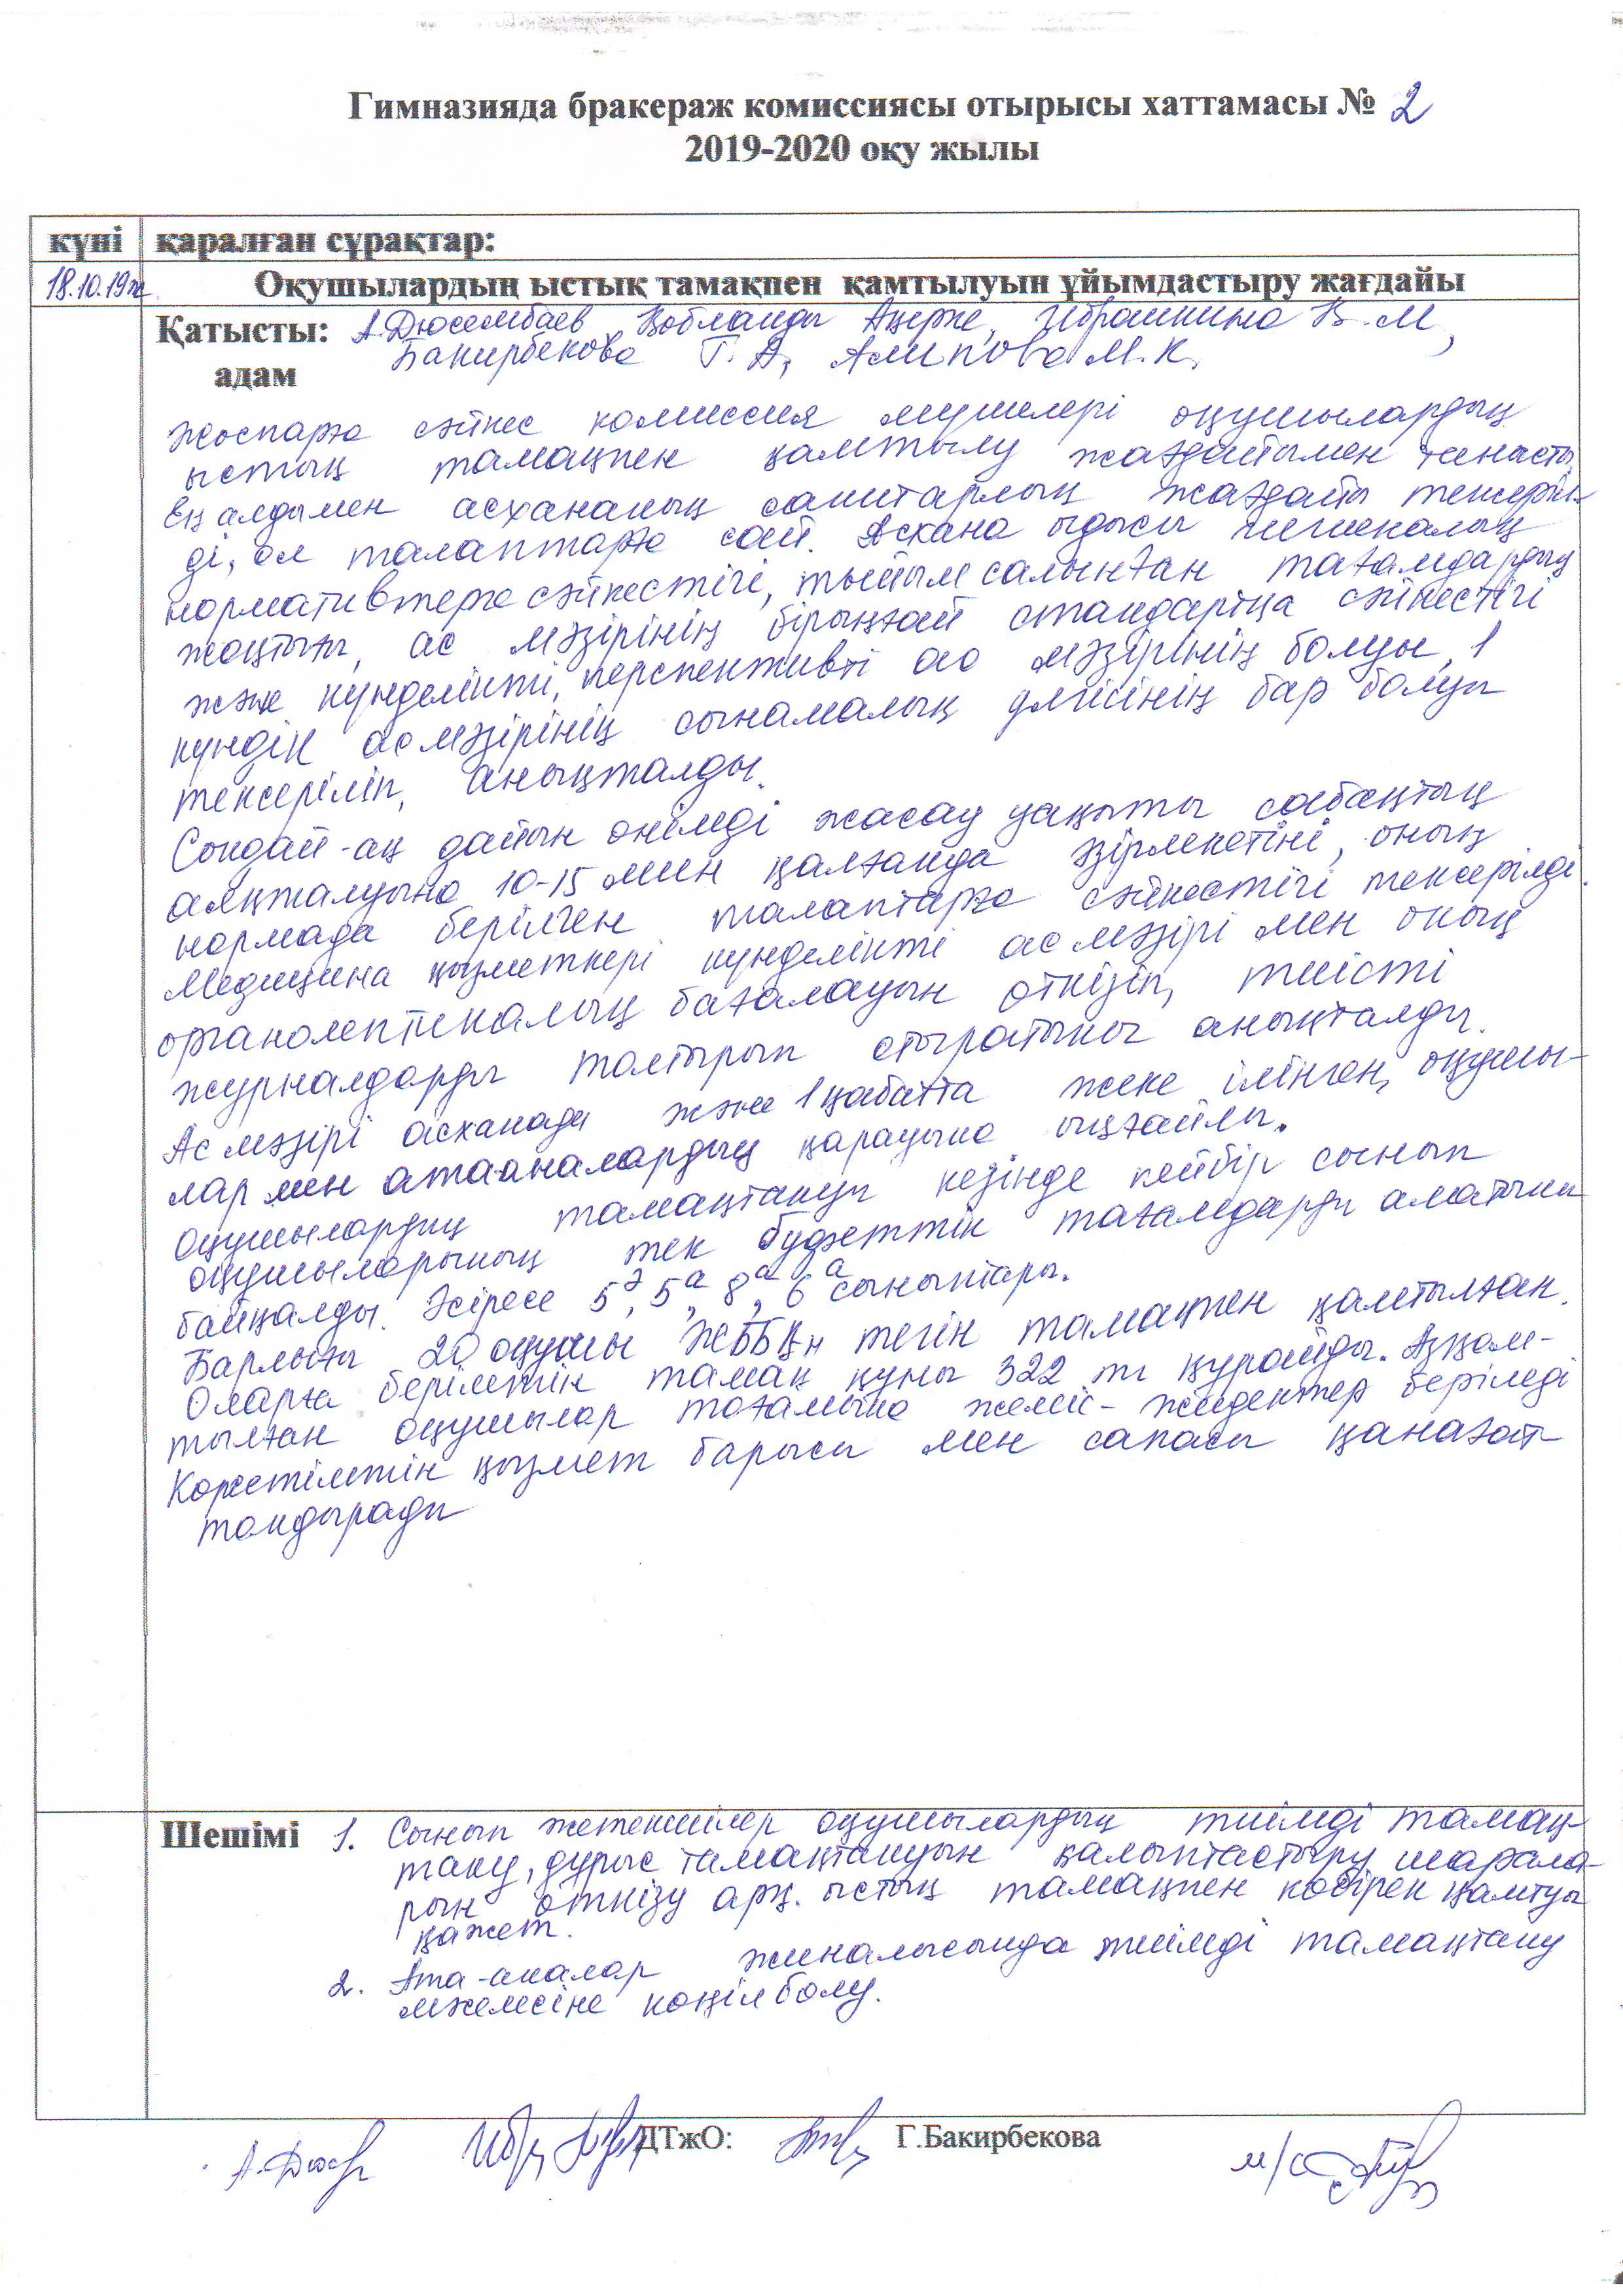 Гимназияда бракераж комиссиясы отырысы хаттамасы № 2
2019-2020 оқу жылы
күні қаралған сұрақтар:
18.10.19ж Оқушылардың ыстық тамақпен қамтылуын ұйымдастыру жағдайы
Қатысты: А.Дюсембаев, Қобланды Ақерке, Ибрашкина Қ.М,
адам Бакирбекова Г.А, Алипова М.К.
Жоспарға сәйкес комиссия мүшелері оқушылардың
ыстық тамақпен қамтылу жағдайымен танысты.
Ең алдымен асхананың санитарлық жағдайы тексеріл-
ді, ол талаптарға сай. Асхана ыдысы гигиеналық
нормативтерге сәйкестігі, тыйым салынған тағамдардың
жоқтығы, ас мәзірінің бірыңғай стандартқа сәйкестігі
және күнделікті, перспективті ас мәзірінің болуы, 1
күндік ас мәзірінің сынамалық үлгісінің бар болуы
тексеріліп, анықталды.
Сондай-ақ дайын өнімді жасау уақыты сабақтың
аяқталуына 10-15 мин қалғанда әзірленетіні, оның
нормада берілген талаптарға сәйкестігі тексерілді.
Медицина қызметкері күнделікті ас мәзірі мен оның
органолептикалық бағалауын өткізіп, тиісті
журналдарды толтырып отыратыны анықталды.
Ас мәзірі асханада және 1 қабатта жеке ілінген, оқушы-
лар мен атааналардың қарауына ыңғайлы.
Оқушылардың тамақтануы кезінде кейбір сынып
оқушыларының тек буфеттік тағамдарды алатыны
байқалды. Әсіресе 5ә, 5а, 8а, 6а сыныптары.
Барлығы 20 оқушы ЖББҚн тегін тамақпен қамтылған.
Оларға берілетін тамақ құны 322 тг құрайды. Аз қам-
тылған оқушылар тағамына жеміс-жидектер беріледі
Көрсетілетін қызмет барысы мен сапасы қанағат
тандырады
Шешімі 1. Сынып жетекшілер оқушылардың тиімді тамақ-
тану, дұрыс тамақтануын қалыптастыру шарала-
рын өткізу арқ. ыстық тамақпен көбірек қамтуы
қажет.
2. Ата-аналар жиналысында тиімді тамақтану
мәселесіне көңіл бөлу.
ДТжО: Г.Бакирбекова
м/с